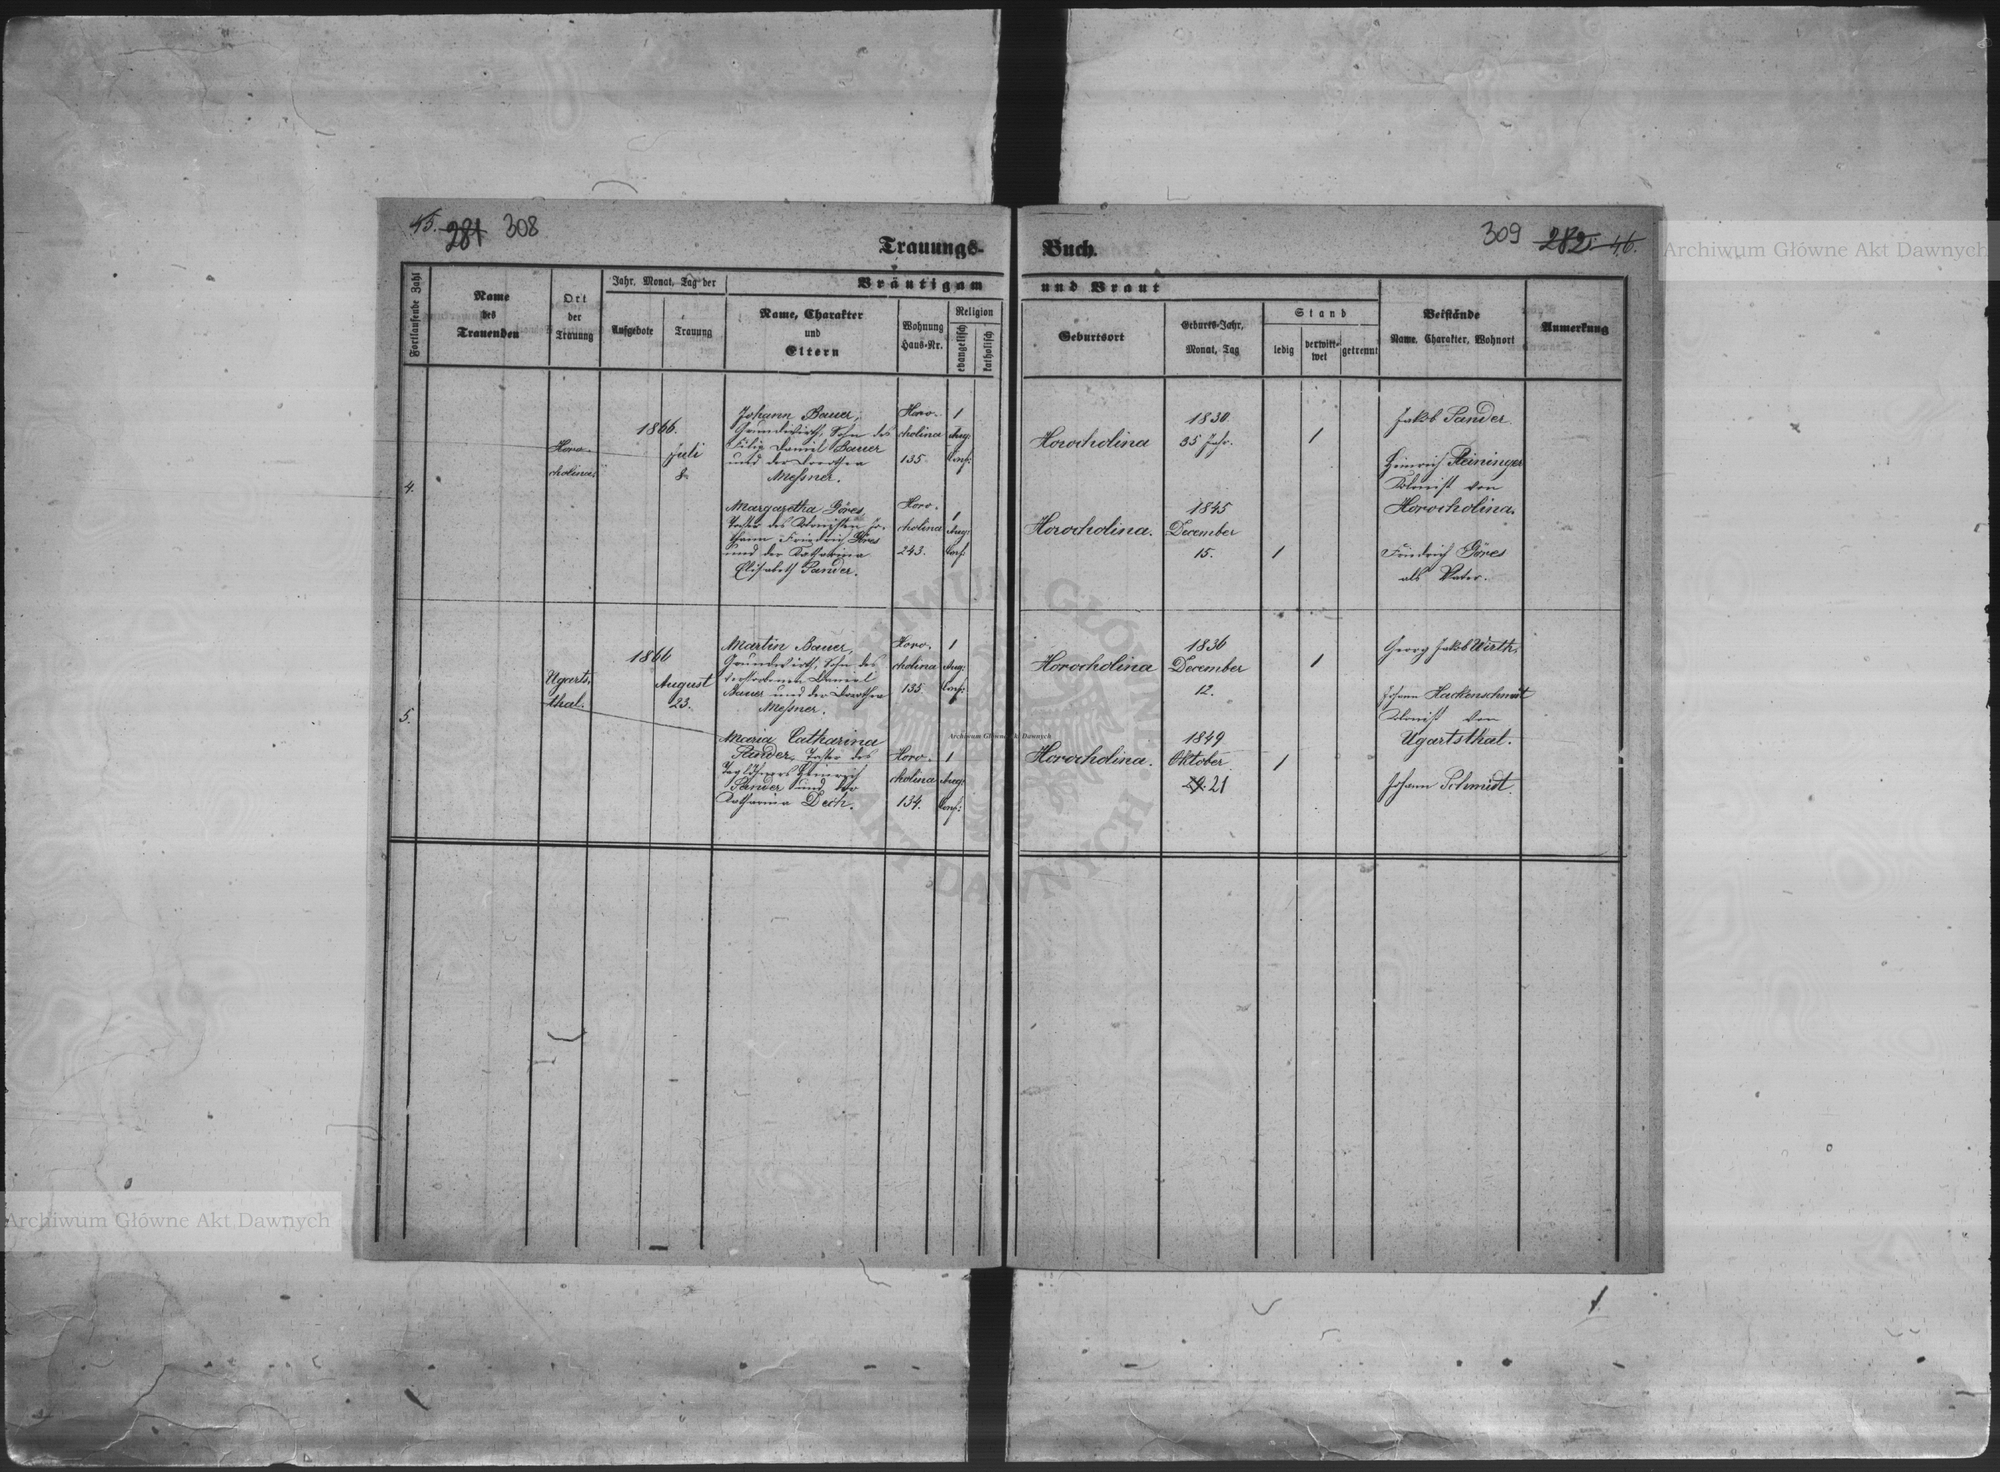 45. 281 308
Trauungs-
Fortlaufende Zahl
Name
des
Trauenden
Ort
der
Trauung
Jahr, Monat, Tag der
Aufgebote
Trauung
Bräutigam
Name, Charakter
und
Eltern
Wohnung
Haus-Nr.
Religion
evangelisch
katholisch
309 282. 46.
Buch.
und Braut
Geburtsort
Geburts-Jahr,
Monat, Tag
Stand
ledig
verwitt-
wet
getrennt
Beistände
Name, Charakter, Wohnort
Anmerkung
4.
Horo-
cholina
1866.
Juli
8.
Johann Bauer,
Grundwirth, Sohn des
Filip Daniel Bauer
und der Dorothea
Meßner.
Horo-
cholina
135
1
Aug:
Conf:
Horocholina
1830
35 Jahr.
1
Jakob Sander
Heinrich Reininger
Kolonist von
Horocholina.
Margaretha Göres
Tochter des Kolonisten Jo-
hann Friedrich Göres
und der Katharina
Elisabeth Sander.
Horo-
cholina
243.
1
Aug:
Conf
Horocholina.
1845
December
15.
1
Friedrich Göres
als Vater.
5.
Ugarts-
thal.
1866
August
23.
Martin Bauer,
Grundwirth, Sohn des
verstorbenen Daniel
Bauer und der Dorothea
Meßner.
Horo-
cholina
135
1
Aug:
Conf:
Horocholina
1836
December
12.
1
Georg Jakob Wirth.
Johann Hackenschmidt
Kolonist von
Ugartsthal.
Maria Catharina
Sander, Tochter des
Taglöhners Heinrich
Sander und der
Katharina Dech.
Horo-
cholina
134.
1
Aug:
Conf:
Horocholina.
1849
Oktober
21
1
Johann Schmidt.
Archiwum Główne Akt Dawnych
Archiwum Główne Akt Dawnych
Archiwum Główne Akt Dawnych
ARCHIWUM GŁÓWNE AKT DAWNYCH